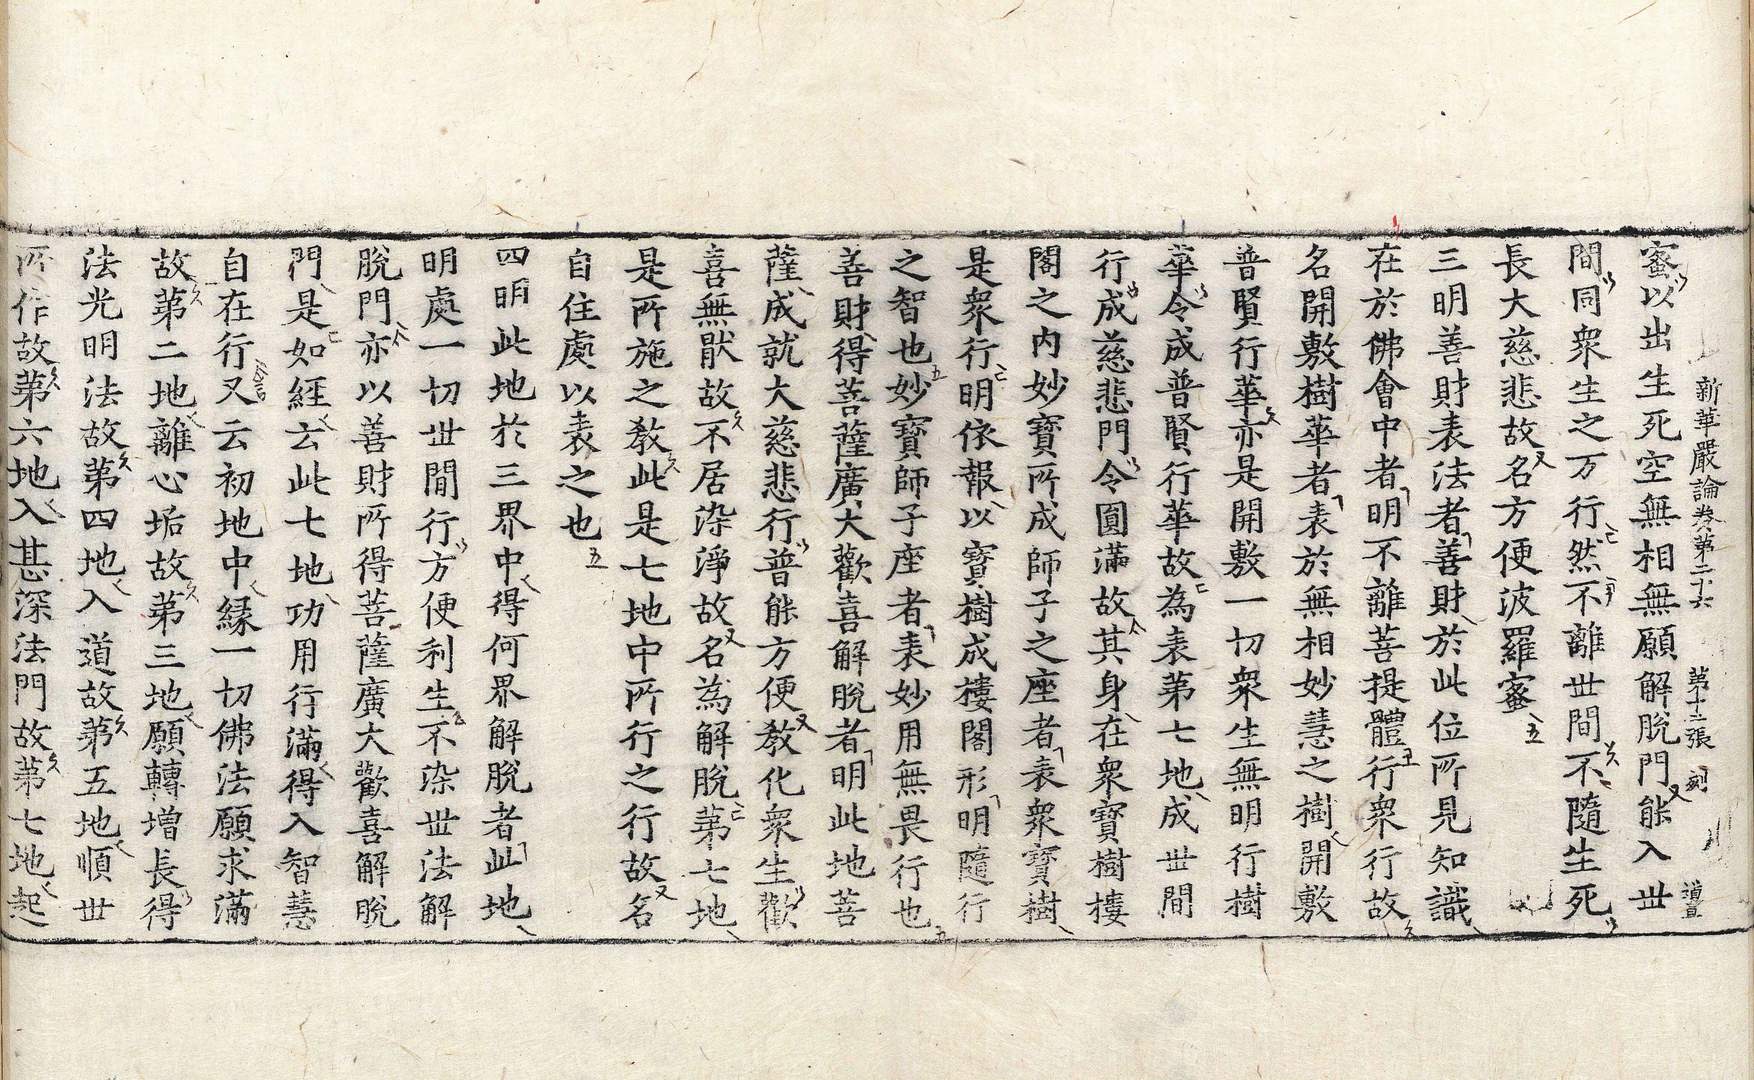 新華嚴論卷第二十六 第十三張 刻 道直
蜜以出生死空無相無願解脫門能入世
間同衆生之万行然不離世間不隨生死
長大慈悲故名方便波羅蜜
三明善財表法者善財於此位所見知識
在於佛會中者明不離菩提體行衆行故
名開敷樹華者表於無相妙慧之樹開敷
普賢行華亦是開敷一切衆生無明行樹
華令成普賢行華故為表第七地成世間
行成慈悲門令圓滿故其身在衆寶樹樓
閣之内妙寶所成師子之座者表衆寶樹
是衆行明依報以寶樹成樓閣形明隨行
之智也妙寶師子座者表妙用無畏行也
善財得菩薩廣大歡喜解脫者明此地菩
薩成就大慈悲行普能方便教化衆生歡
喜無猒故不居染淨故名為解脫第七地
是所施之教此是七地中所行之行故名
自住處以表之也
四明此地於三界中得何界解脫者此地
明處一切世間行方便利生不染世法解
脫門亦以善財所得菩薩廣大歡喜解脫
門是如經云此七地功用行滿得入智慧
自在行又云初地中緣一切佛法願求滿
故第二地離心垢故第三地願轉增長得
法光明法故第四地入道故第五地順世
所作故第六地入甚深法門故第七地起